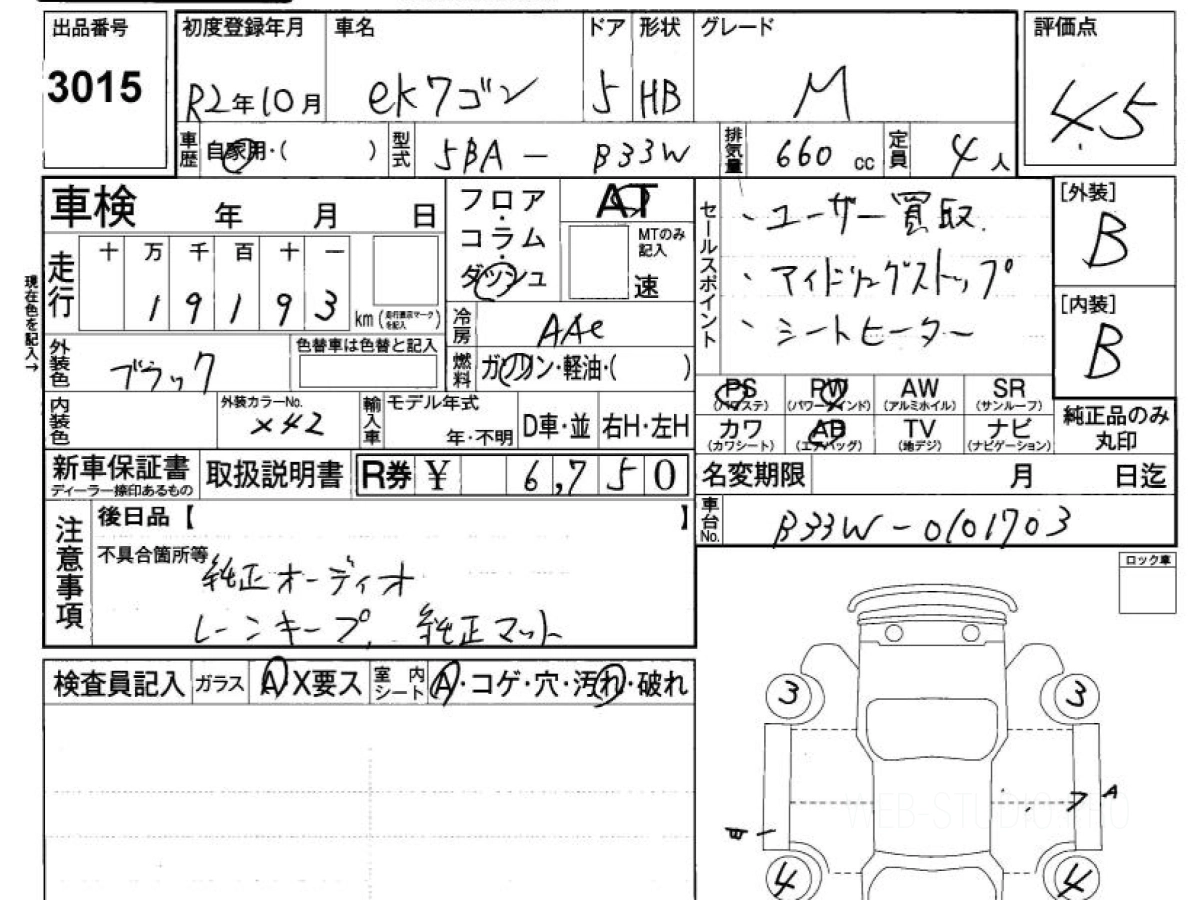 出品番号
3015
初度登録年月
R2年10月
車名
ekワゴン
ドア
5
形状
HB
グレード
M
評価点
4.5
車歴
自家用・( )
型式
5BA - B33W
排気量
660 cc
定員
4人
車検 年 月 日
現在色を記入→
走行
十 万 千 百 十 一
1 9 1 9 3
km (走行表示マークを記入)
フロア・コラム・ダッシュ
AT
MTのみ記入
速
セールスポイント
、ユーザー買取.
、アイドリングストップ
、シートヒーター
[外装]
B
[内装]
B
冷房
AAC
燃料
ガソリン・軽油・( )
外装色
ブラック
色替車は色替と記入
内装色
外装カラーNo.
X42
輸入車
モデル年式
年・不明
D車・並
右H・左H
PS
(パワステ)
PW
(パワーウィンド)
AW
(アルミホイル)
SR
(サンルーフ)
カワ
(カワシート)
AB
(エアバッグ)
TV
(地デジ)
ナビ
(ナビゲーション)
純正品のみ
丸印
新車保証書
ディーラー捺印あるもの
取扱説明書
R券 ¥ 6,750
名変期限 月 日迄
車台No.
B33W-0101703
注意事項
後日品【 】
不具合箇所等
純正オーディオ
レーンキープ, 純正マット
ロック車
検査員記入
ガラス
A X要ス
室内シート
A・コゲ・穴・汚れ・破れ
3 3
A
WEB-STUDIO.PRO
4 4